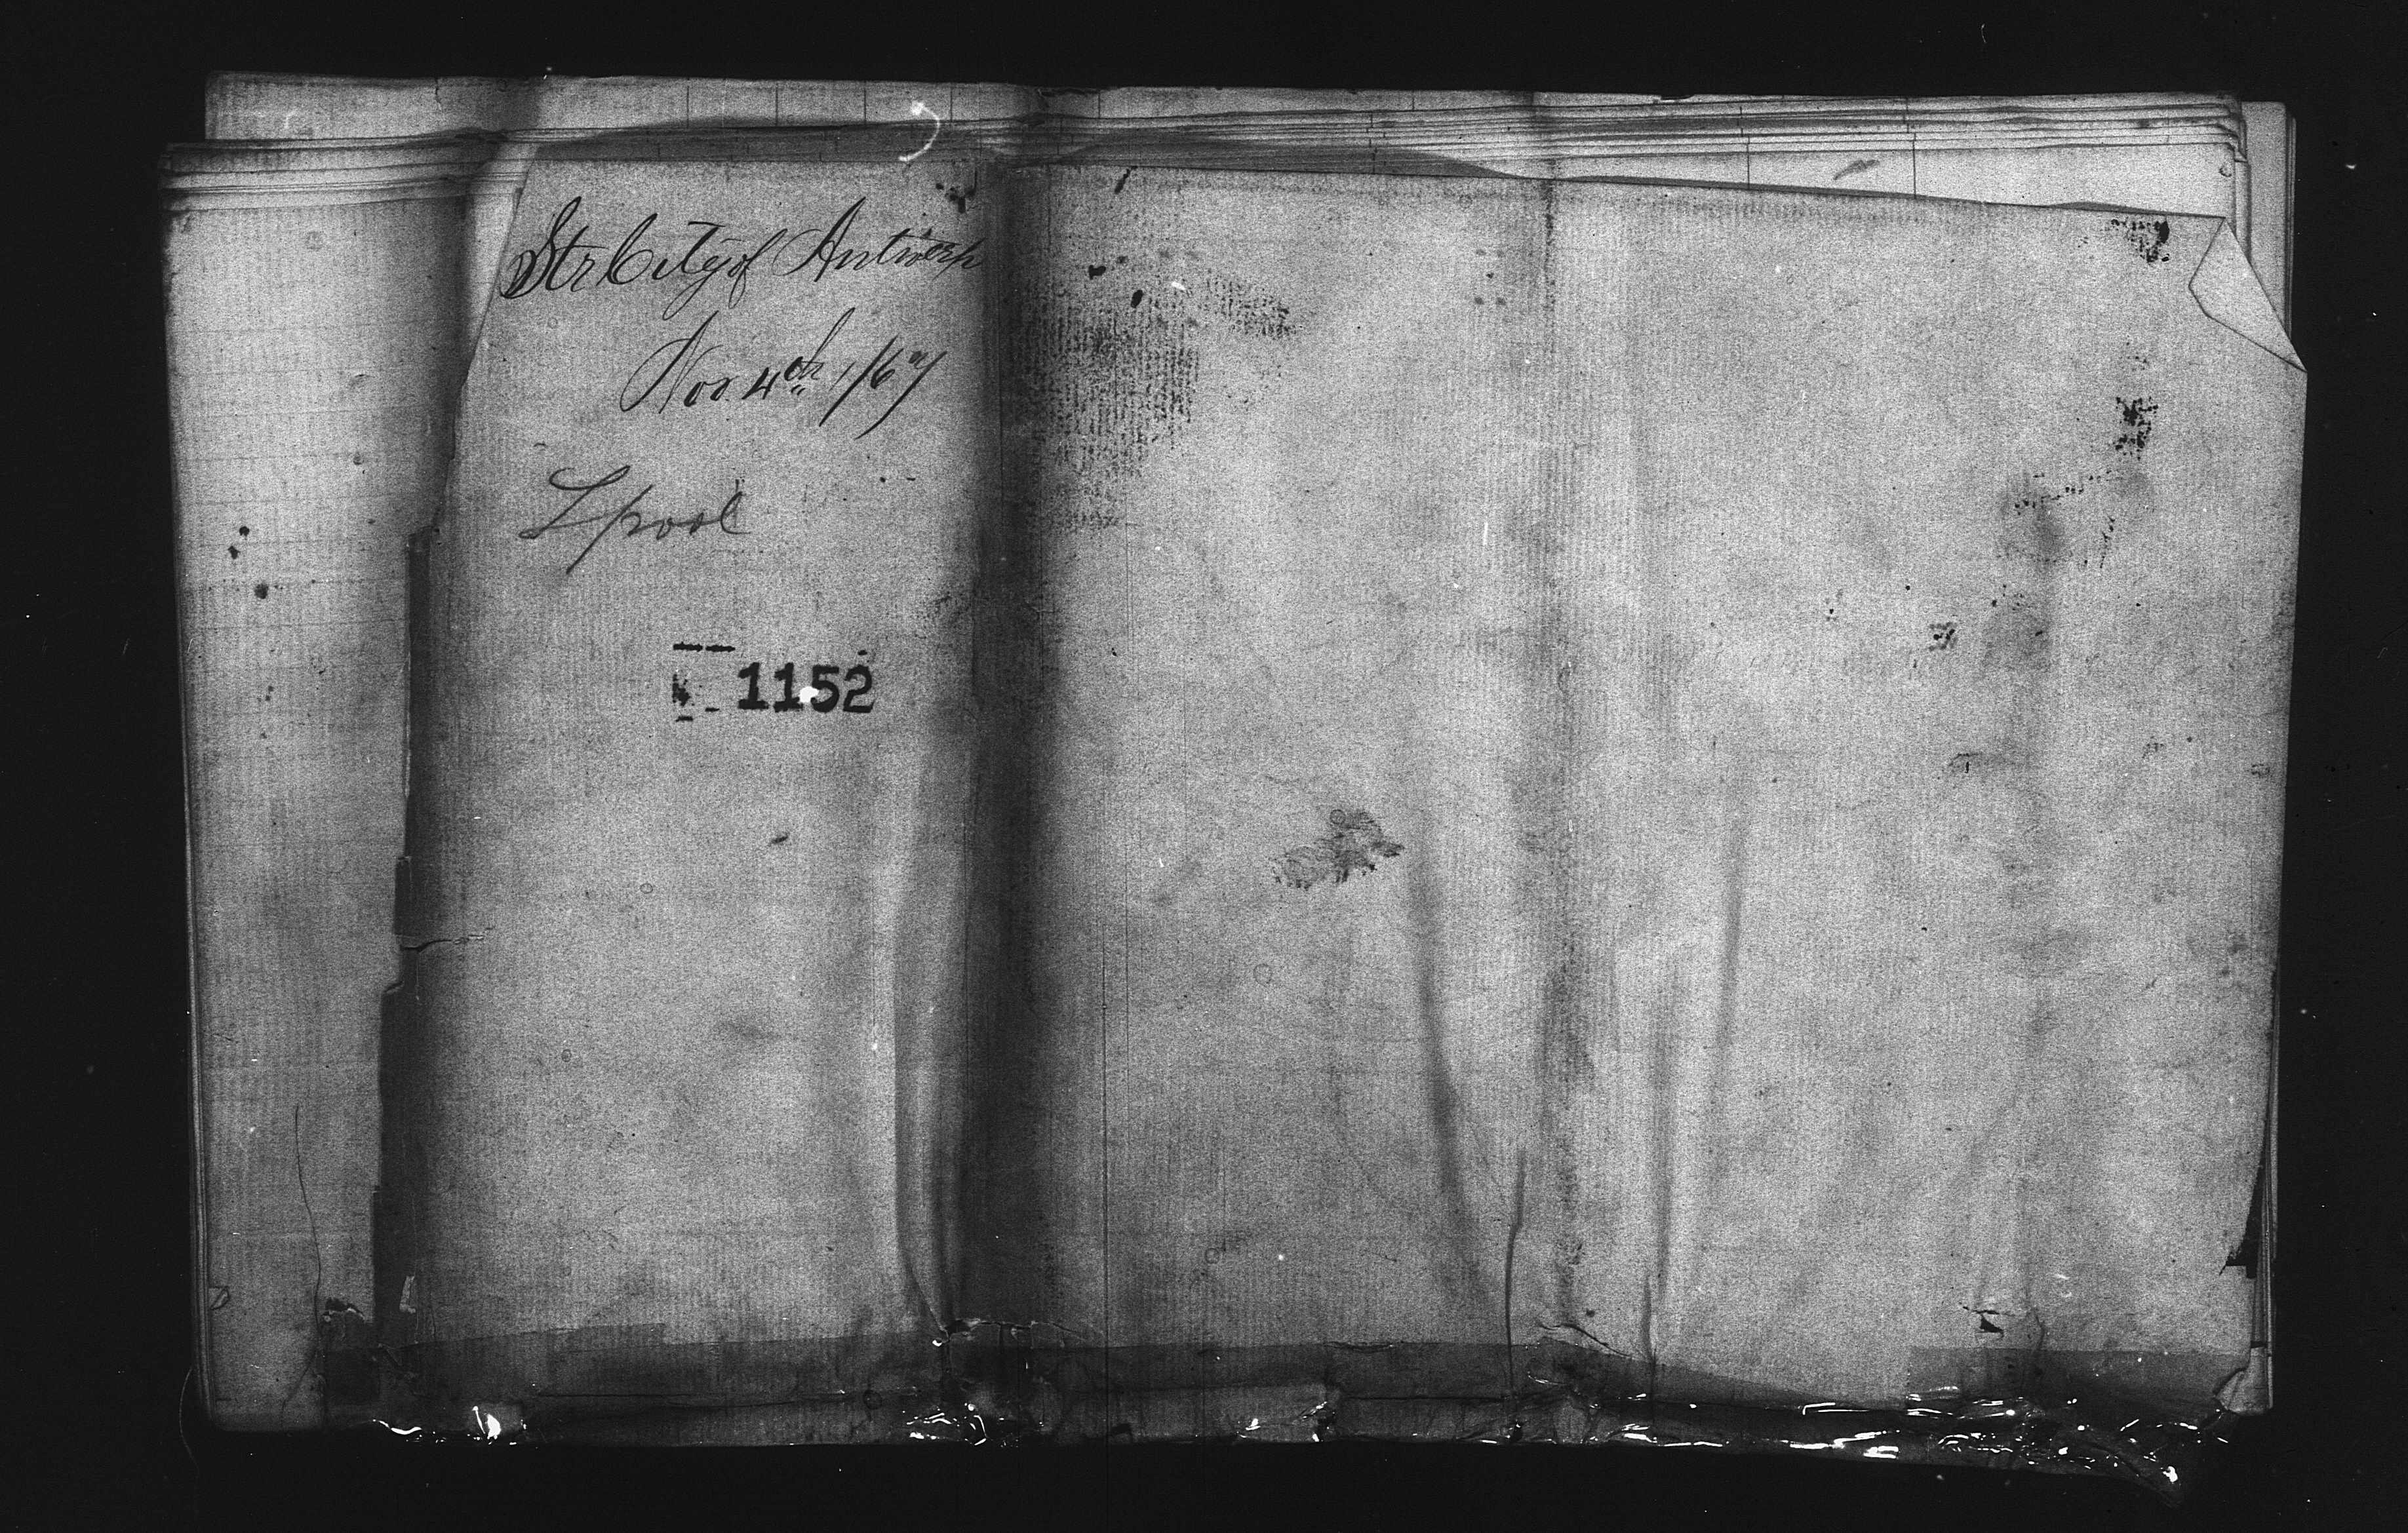 Str City of Antwerp
Nov. 4th 1/67
Lpool
1152